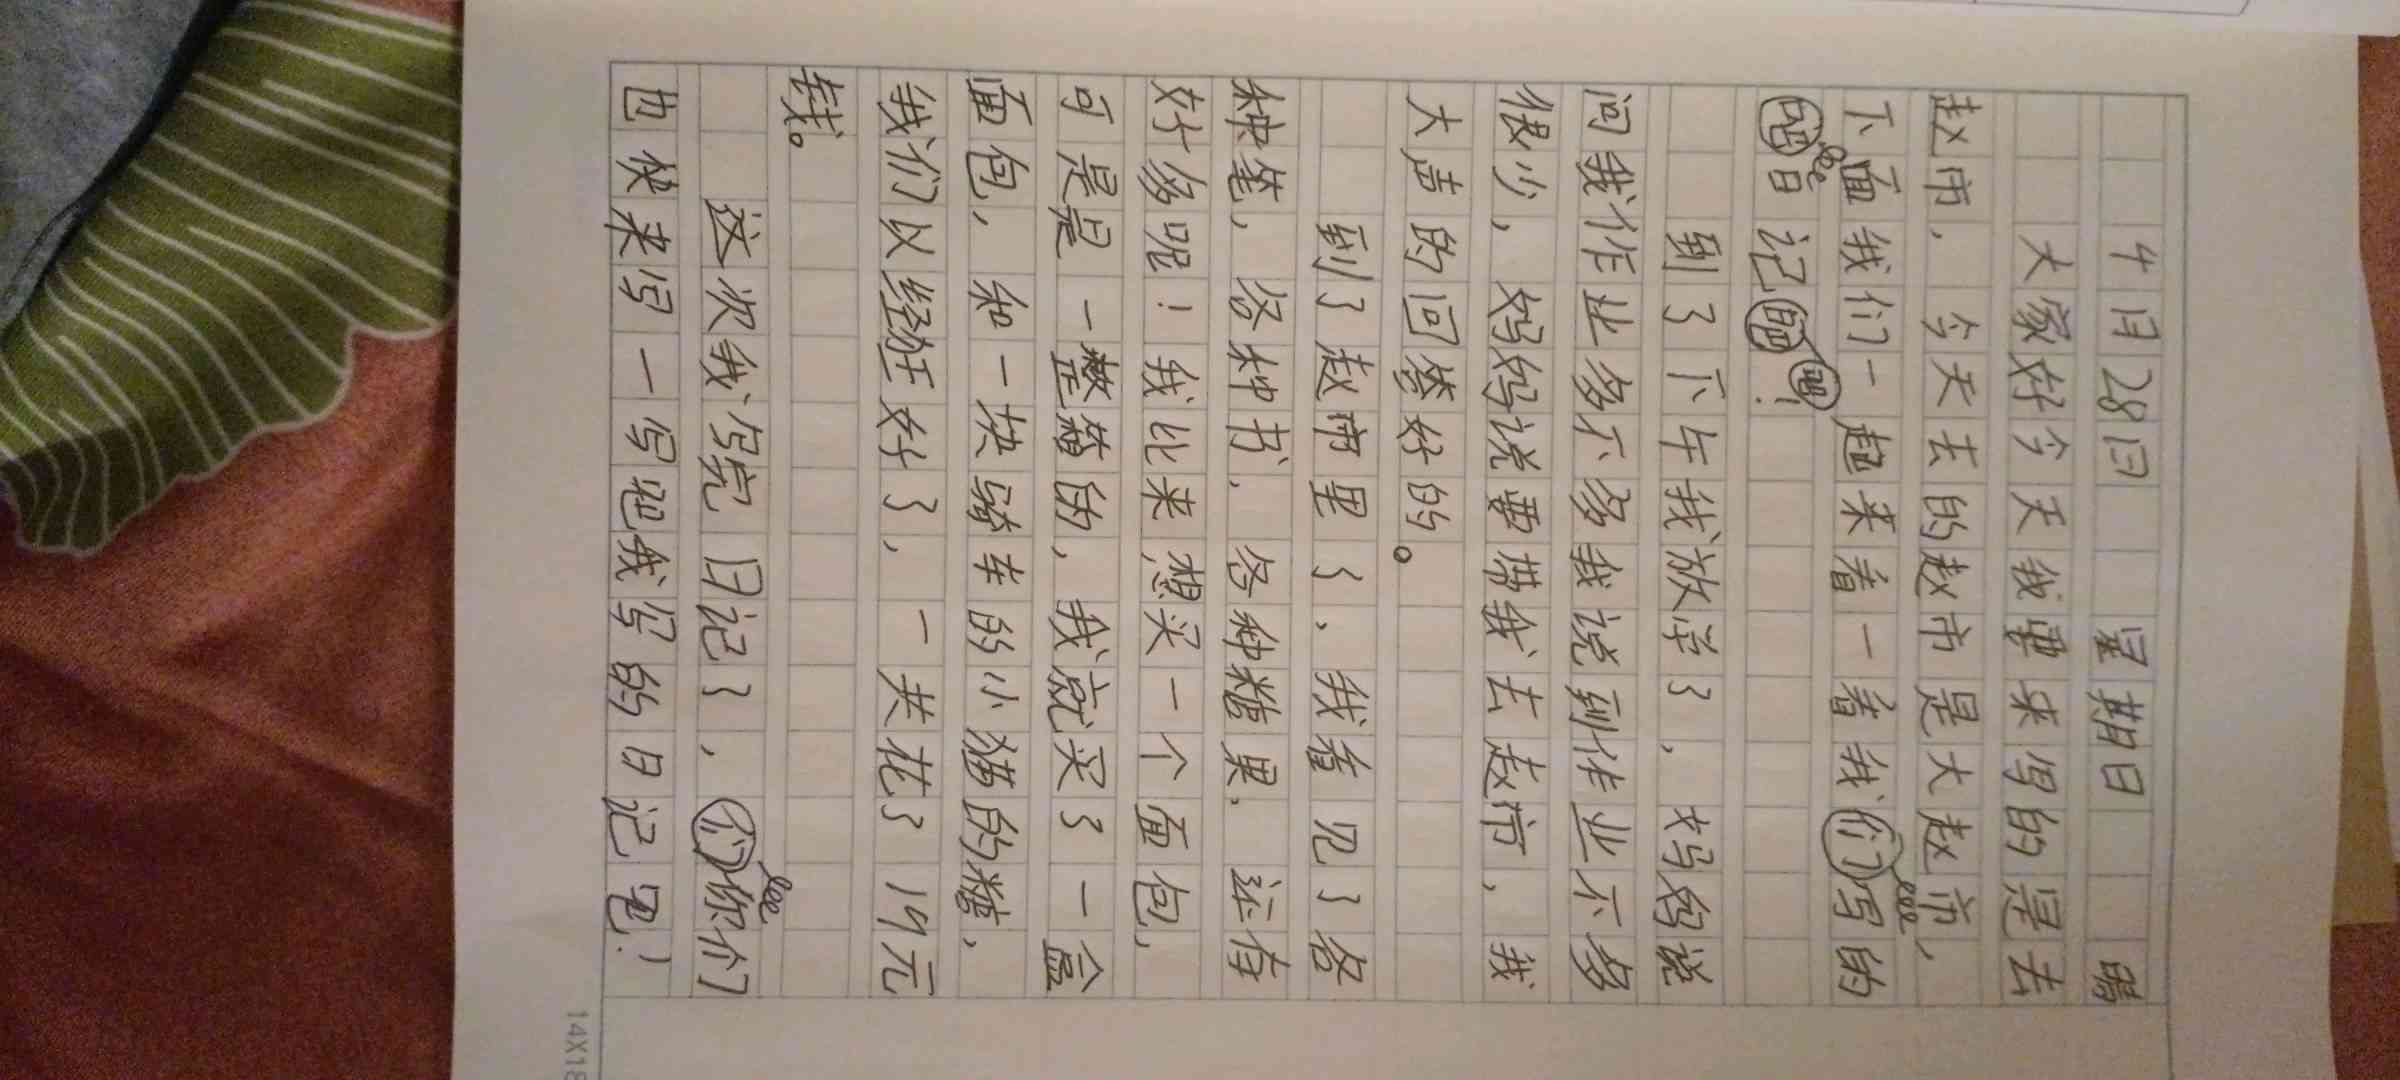 4月28日 星期日 晴
大家好今天我要来写的是去
赵市，今天去的赵市是大赵市，
下面我们一起来着一着我们写的
日记吧！
到了下午我放学了，妈妈说
问我作业多不多我说到作业不多
很少，妈妈说要带我去赵市，我
大声的回答好的。
到了赵市里了，我看见了各
种笔，各种书，各种糖果，还有
好多呢！我比来想买一个面包，
可是是一整箱的，我就买了一盒
面包，和一块骑车的小猪的糖，
我们以经狂好了，一共花了19元
钱。
这次我写完日记了，们你们
也快来写一写吧我写的日记吧！
14X18